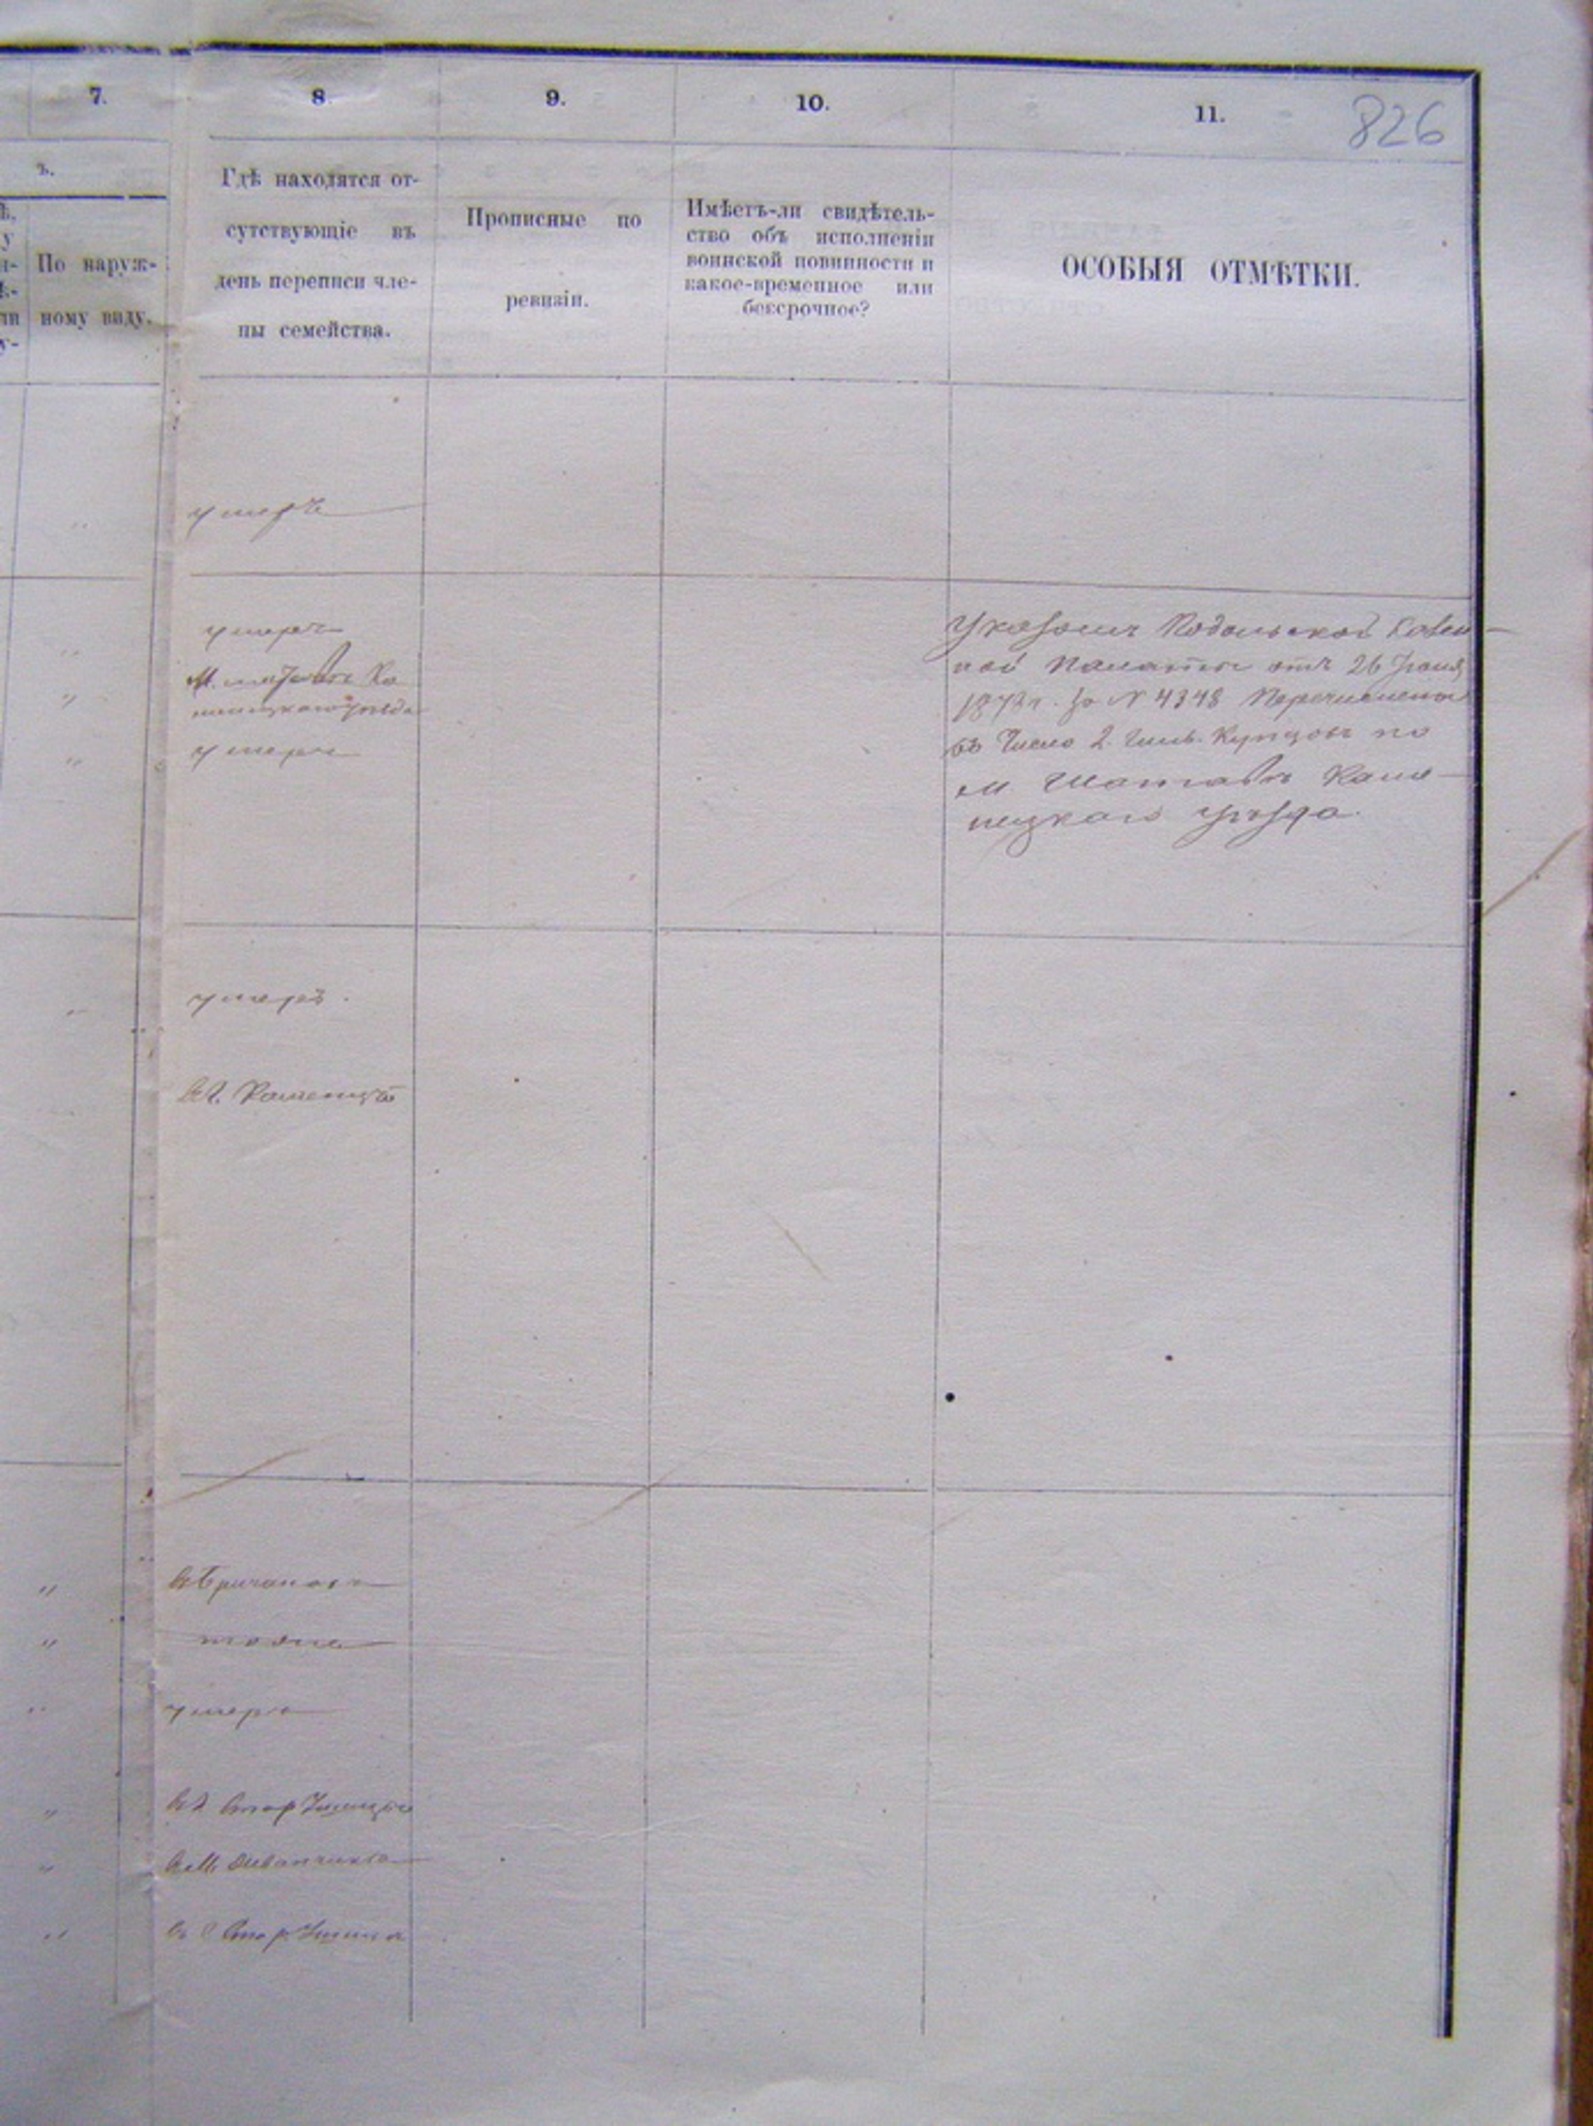 7.
8
9.
10.
11.
826
ъ.
По наруж-
ному виду.
Гдѣ находятся от-
сутствующіе въ
день переписи чле-
ны семейства.
Прописные по
ревизіи.
Имѣетъ-ли свидѣтель-
ство объ исполненіи
воинской повинности и
какое-временное или
бессрочное?
ОСОБЫЯ ОТМѢТКИ.
умеръ
умеръ
умеръ
Указомъ Подольской Казен-
ной Палаты отъ 26
за N 4348 Перечислены
въ число 2. Гильд. Купцовъ по
м. Шатавѣ Каме-
нецкого уѣзда.
умеръ.
въ г. Каменцѣ
въ Бричанахъ
тоже
умеръ
въ Стар Ушицѣ
въ Стар Ушицѣ